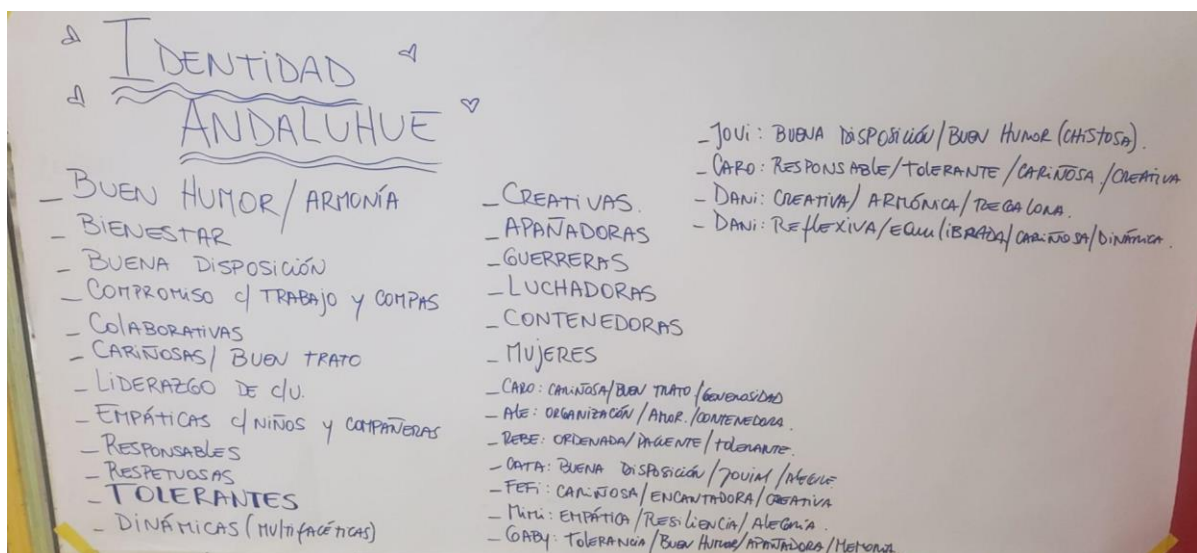 IDENTIDAD
ANDALUHUE
_ BUEN HUMOR/ ARMONÍA
_ BIENESTAR
_ BUENA DISPOSICIÓN
_ COMPROMISO c/ TRABAJO y COMPAS
_ COLABORATIVAS
_ CARIÑOSAS/ BUEN TRATO
_ LIDERAZGO DE c/u.
_ EMPÁTICAS c/ NIÑOS y COMPAÑERAS
_ RESPONSABLES
_ RESPETUOSAS
_ TOLERANTES
_ DINÁMICAS (MULTIFACÉTICAS)
_ CREATIVAS.
_ APAÑADORAS
_ GUERRERAS
_ LUCHADORAS
_ CONTENEDORAS
_ MUJERES
_ CARO: CARIÑOSA/BUEN TRATO/GENEROSIDAD
_ ALE: ORGANIZACIÓN/AMOR./CONTENEDORA.
_ REBE: ORDENADA/PACIENTE/TOLERANTE.
_ CATA: BUENA DISPOSICIÓN/JOVIAL/ALEGRE
_ FEFI: CARIÑOSA/ENCANTADORA/CREATIVA
_ MIMI: EMPÁTICA/RESILIENCIA/ALEGRÍA.
_ GABY: TOLERANCIA/BUEN HUMOR/APAÑADORA/MEMORIA
_ JOVI: BUENA DISPOSICIÓN/BUEN HUMOR (CHISTOSA).
_ CARO: RESPONSABLE/TOLERANTE/CARIÑOSA/CREATIVA
_ DANI: CREATIVA/ ARMÓNICA/REGALONA.
_ DANI: REFLEXIVA/EQUILIBRADA/CARIÑOSA/DINÁMICA.